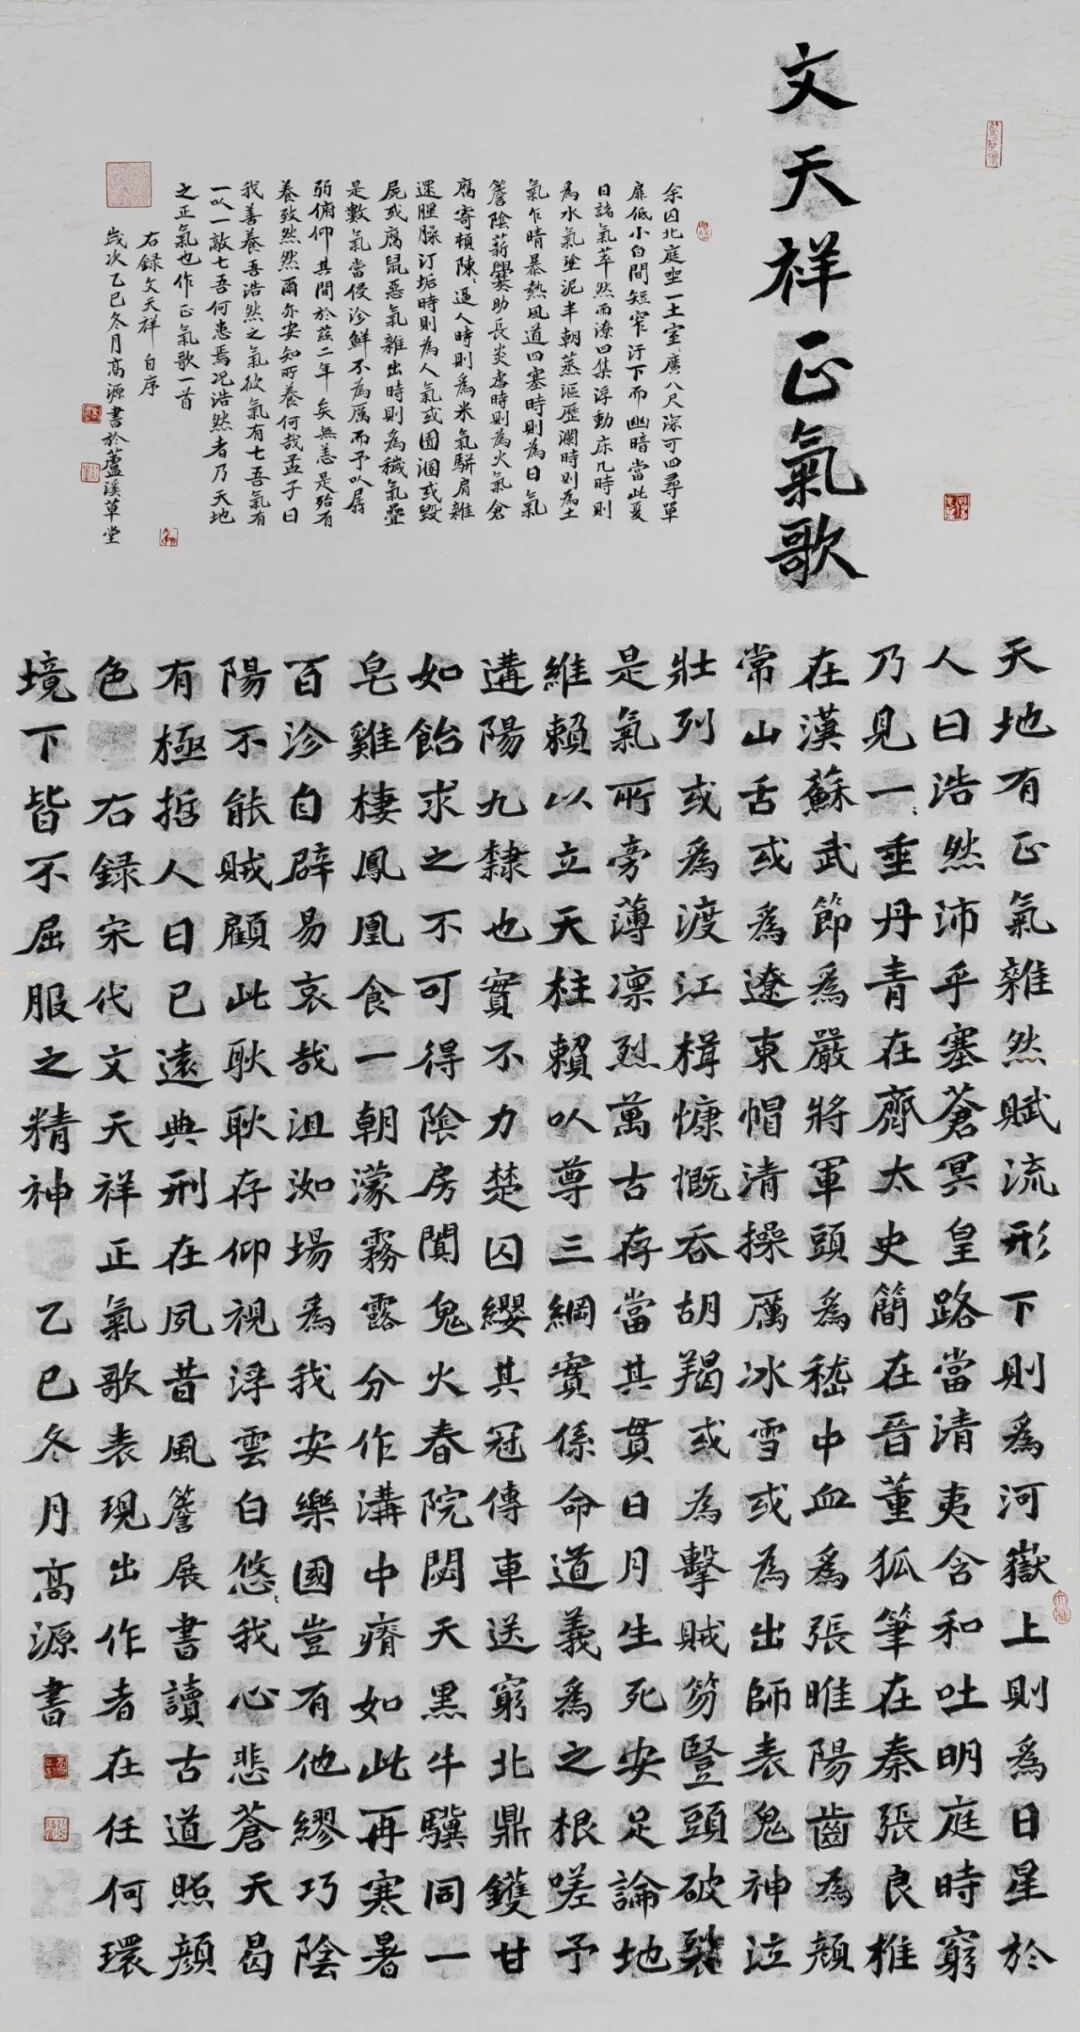 文天祥正氣歌
余囚北庭坐一土室廣八尺深可四尋單
扉低小白間短窄汙下而幽暗當此夏
日諸氣萃然而潦四集浮動床几時則
為水氣塗泥半朝蒸漚歷瀾時則為土
氣乍晴暴熱風道四塞時則為日氣
簷陰薪爨助長炎虐時則為火氣倉
腐寄頓陳〻逼人時則爲米氣駢肩雜
遝腥臊汙垢時則為人氣或圊溷或毀
屍或腐鼠惡氣雜出時則為穢氣疊
是數氣當侵沴鮮不為厲而予以孱
弱俯仰其間於茲二年矣無恙是殆有
養致然然爾亦安知所養何哉孟子曰
我善養吾浩然之氣彼氣有七吾氣有
一以一敵七吾何患焉況浩然者乃天地
之正氣也作正氣歌一首
右録文天祥 自序
歲次乙巳冬月高源書於蘆溪草堂
天地有正氣雜然賦流形下則爲河嶽上則爲日星於
人曰浩然沛乎塞蒼冥皇路當清夷含和吐明庭時窮
乃見一〻垂丹青在齊太史簡在晉董狐筆在秦張良椎
在漢蘇武節爲嚴將軍頭爲嵇中血爲張睢陽齒為顏
常山舌或爲遼東帽清操厲冰雪或為出師表鬼神泣
壯列或爲渡江楫慷慨吞胡羯或為擊賊笏豎頭破裂
是氣所旁薄凜烈萬古存當其貫日月生死安足論地
維賴以立天柱賴以尊三綱實係命道義爲之根嗟予
遘陽九隸也實不力楚囚纓其冠傳車送窮北鼎鑊甘
如飴求之不可得陰房闃鬼火春院閟天黑牛驥同一
皂雞棲鳳凰食一朝濛霧露分作溝中瘠如此再寒暑
百沴自辟易哀哉沮洳場爲我安樂國豈有他繆巧陰
陽不能賊顧此耿耿存仰視浮雲白悠〻我心悲蒼天曷
有極哲人日已遠典刑在夙昔風簷展書讀古道照顏
色 右録宋代文天祥正氣歌表現出作者在任何環
境下皆不屈服之精神 乙巳冬月高源書